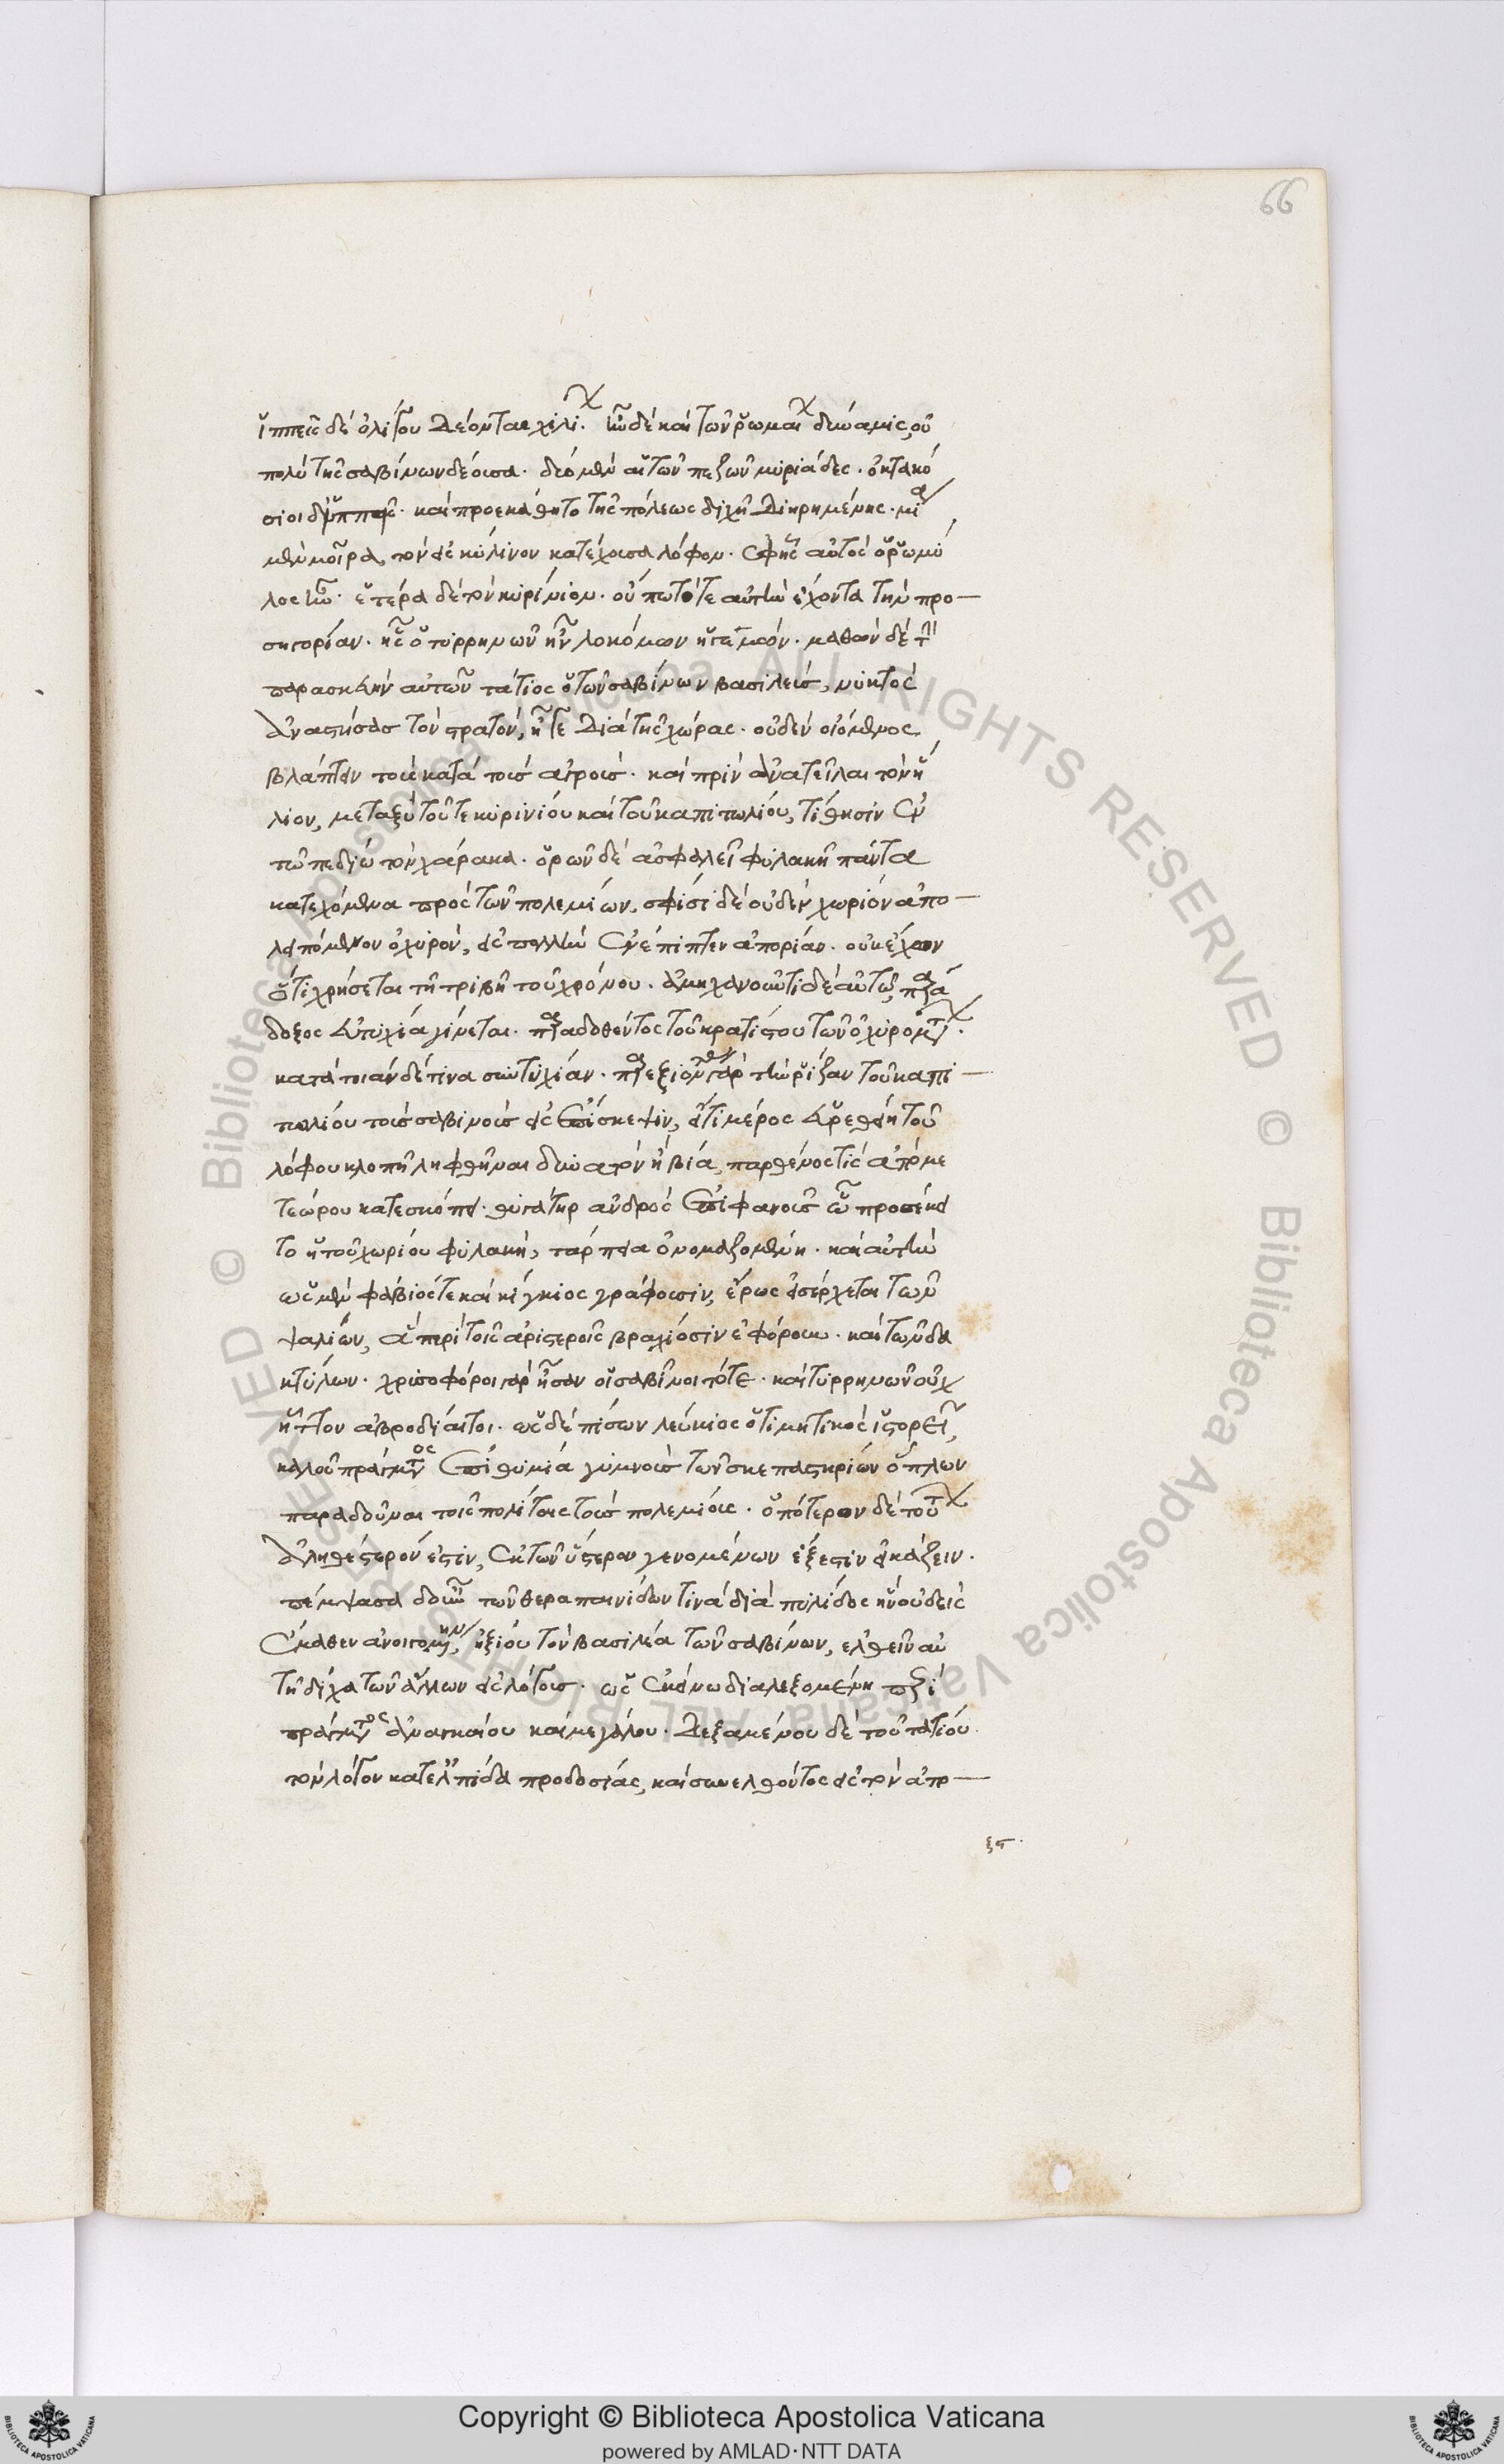 66
ἱππεῖς δὲ ὀλίγου δέοντες χίλι. ἦν δὲ καὶ τῶν ῥωμαι δύναμις, οὐ
πολὺ τῆς σαβίνων δέουσα. δύο μὲν αὗται πεζῶν μυριάδες. ὀκτακό
σιοι δ' ἱππεῖς. καὶ προεκάθητο τῆς πόλεως διχῆ διηρημένης. μία
μὲν μοῖρα, τὸν αἰκυλῖνον κατέχουσα λόφον. ἐφ' ἧς αὐτὸς ὁ ῥωμύ
λος ἦν. ἑτέρα δὲ τὸν κυρίνιον. οὔπω τότε αὐτὴν ἔχοντα τὴν προ
σηγορίαν. ἧς ὁ τυρρηνῶν ἦν λοκόμων ἡγεμών. μαθὼν δὲ τὴν
παρασκευὴν αὐτῶν τάτιος ὁ τῶν σαβίνων βασιλεύς, νυκτὸς
ἀναστήσας τὸν στρατόν, ἦγε διὰ τῆς χώρας. οὐδὲν οἰόμενος
βλάπτειν τοὺς κατὰ τοὺς ἀγρούς. καὶ πρὶν ἀνατεῖλαι τὸν ἥ
λιον, μεταξὺ τοῦ τε κυρινίου καὶ τοῦ καπιτωλίου, τίθησιν ἐν
τῷ πεδίῳ τὸν χάρακα. ὁρῶν δὲ ἀσφαλεῖ φυλακῇ πάντα
κατεχόμενα πρὸς τῶν πολεμίων, σφίσι δὲ οὐδὲν χωρίον ἀπο
λειπόμενον ὀχυρόν, εἰς πολλὴν ἐνέπιπτεν ἀπορίαν. οὐκ ἔχων
ὅτι χρήσεται τῇ τριβῇ τοῦ χρόνου. ἀμηχανοῦντι δὲ αὐτῷ, παρά
δοξος εὐτυχία γίνεται. παραδοθέντος τοῦ κρατίστου τῶν ὀχυρομάτ.
κατὰ ποιάν δέ τινα συντυχίαν. παρεξιοῦσιν γὰρ τὴν ῥίζαν τοῦ καπι
τωλίου τοῖς σαβίνοις εἰς ἐπίσκεψιν, εἴ τι μέρος εὑρεθείη τοῦ
λόφου κλοπῇ ληφθῆναι δυνατὸν ἢ βίᾳ, παρθένος τὶς ἀπὸ με
τεώρου κατεσκόπει. θυγάτηρ ἀνδρὸς ἐπιφανοῦς ᾧ προσέκει
το ἡ τοῦ χωρίου φυλακή, τάρπεια ὀνομαζομένη. καὶ αὐτὴν
ὡς μὲν φάβιός τε καὶ κίγκιος γράφουσιν, ἔρως εἰσέρχεται τῶν
ψαλίων, ἃ περὶ τοῖς ἀριστεροῖς βραχίοσιν ἐφόρουν. καὶ τῶν δα
κτύλων. χρυσοφόροι γὰρ ἦσαν οἱ σαβῖνοι τότε. καὶ τυρρηνῶν οὐχ
ἧττον ἁβροδίαιτοι. ὡς δὲ πίσων λεύκιος ὁ τιμητικὸς ἱστορεῖ,
καλοῦ πράγματος ἐπιθυμία γυμνοὺς τῶν σκεπαστηρίων ὅπλων
παραδοῦναι τοῖς πολίταις τοὺς πολεμίους. ὁπότερον δὲ τοῦτ
ἀληθέστερόν ἐστιν, ἐκ τῶν ὕστερον γενομένων ἔξεστιν εἰκάζειν.
πέμψασα δ' οὖν τῶν θεραπαινίδων τινὰ διὰ πυλίδος ἣν οὐδεὶς
ἔμαθεν ἀνοιγομένην, ἠξίου τὸν βασιλέα τῶν σαβίνων, ἐλθεῖν αὐ
τῇ δίχα τῶν ἄλλων εἰς λόγους. ὡς ἐκείνῳ διαλεξομένη περὶ
πράγματος ἀναγκαίου καὶ μεγάλου. δεξαμένου δὲ τοῦ τατίου
τὸν λόγον κατ' ἐλπίδα προδοσίας, καὶ συνελθόντος εἰς τὸν ἀπο
ξσ.
Copyright © Biblioteca Apostolica Vaticana
powered by AMLAD·NTT DATA